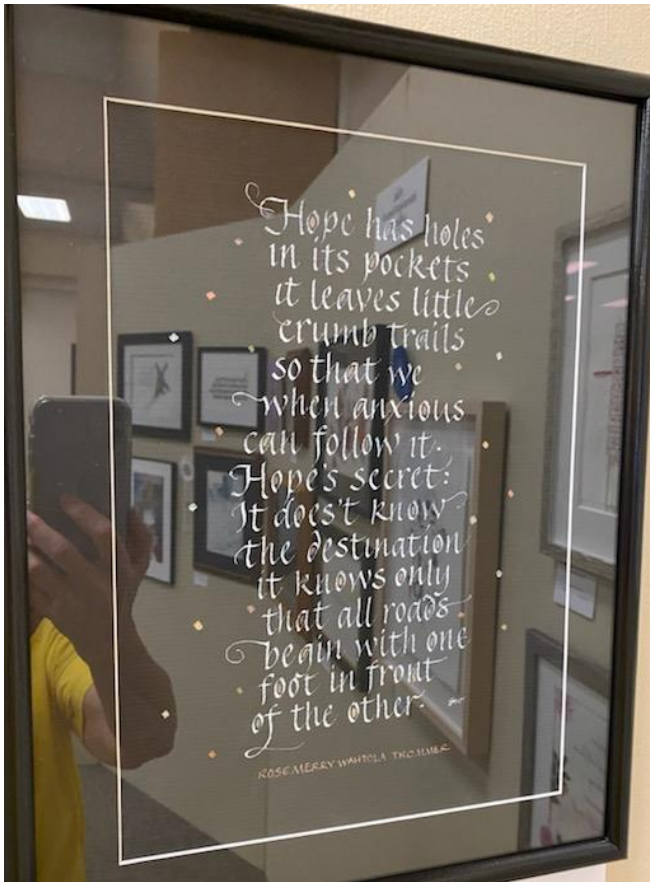 Hope has holes
in its pockets
it leaves little
crumb trails
so that we
when anxious
can follow it.
Hope's secret:
It does't know
the destination
it knows only
that all roads
begin with one
foot in front
of the other.
ROSEMERRY WAHTOLA TROMMER